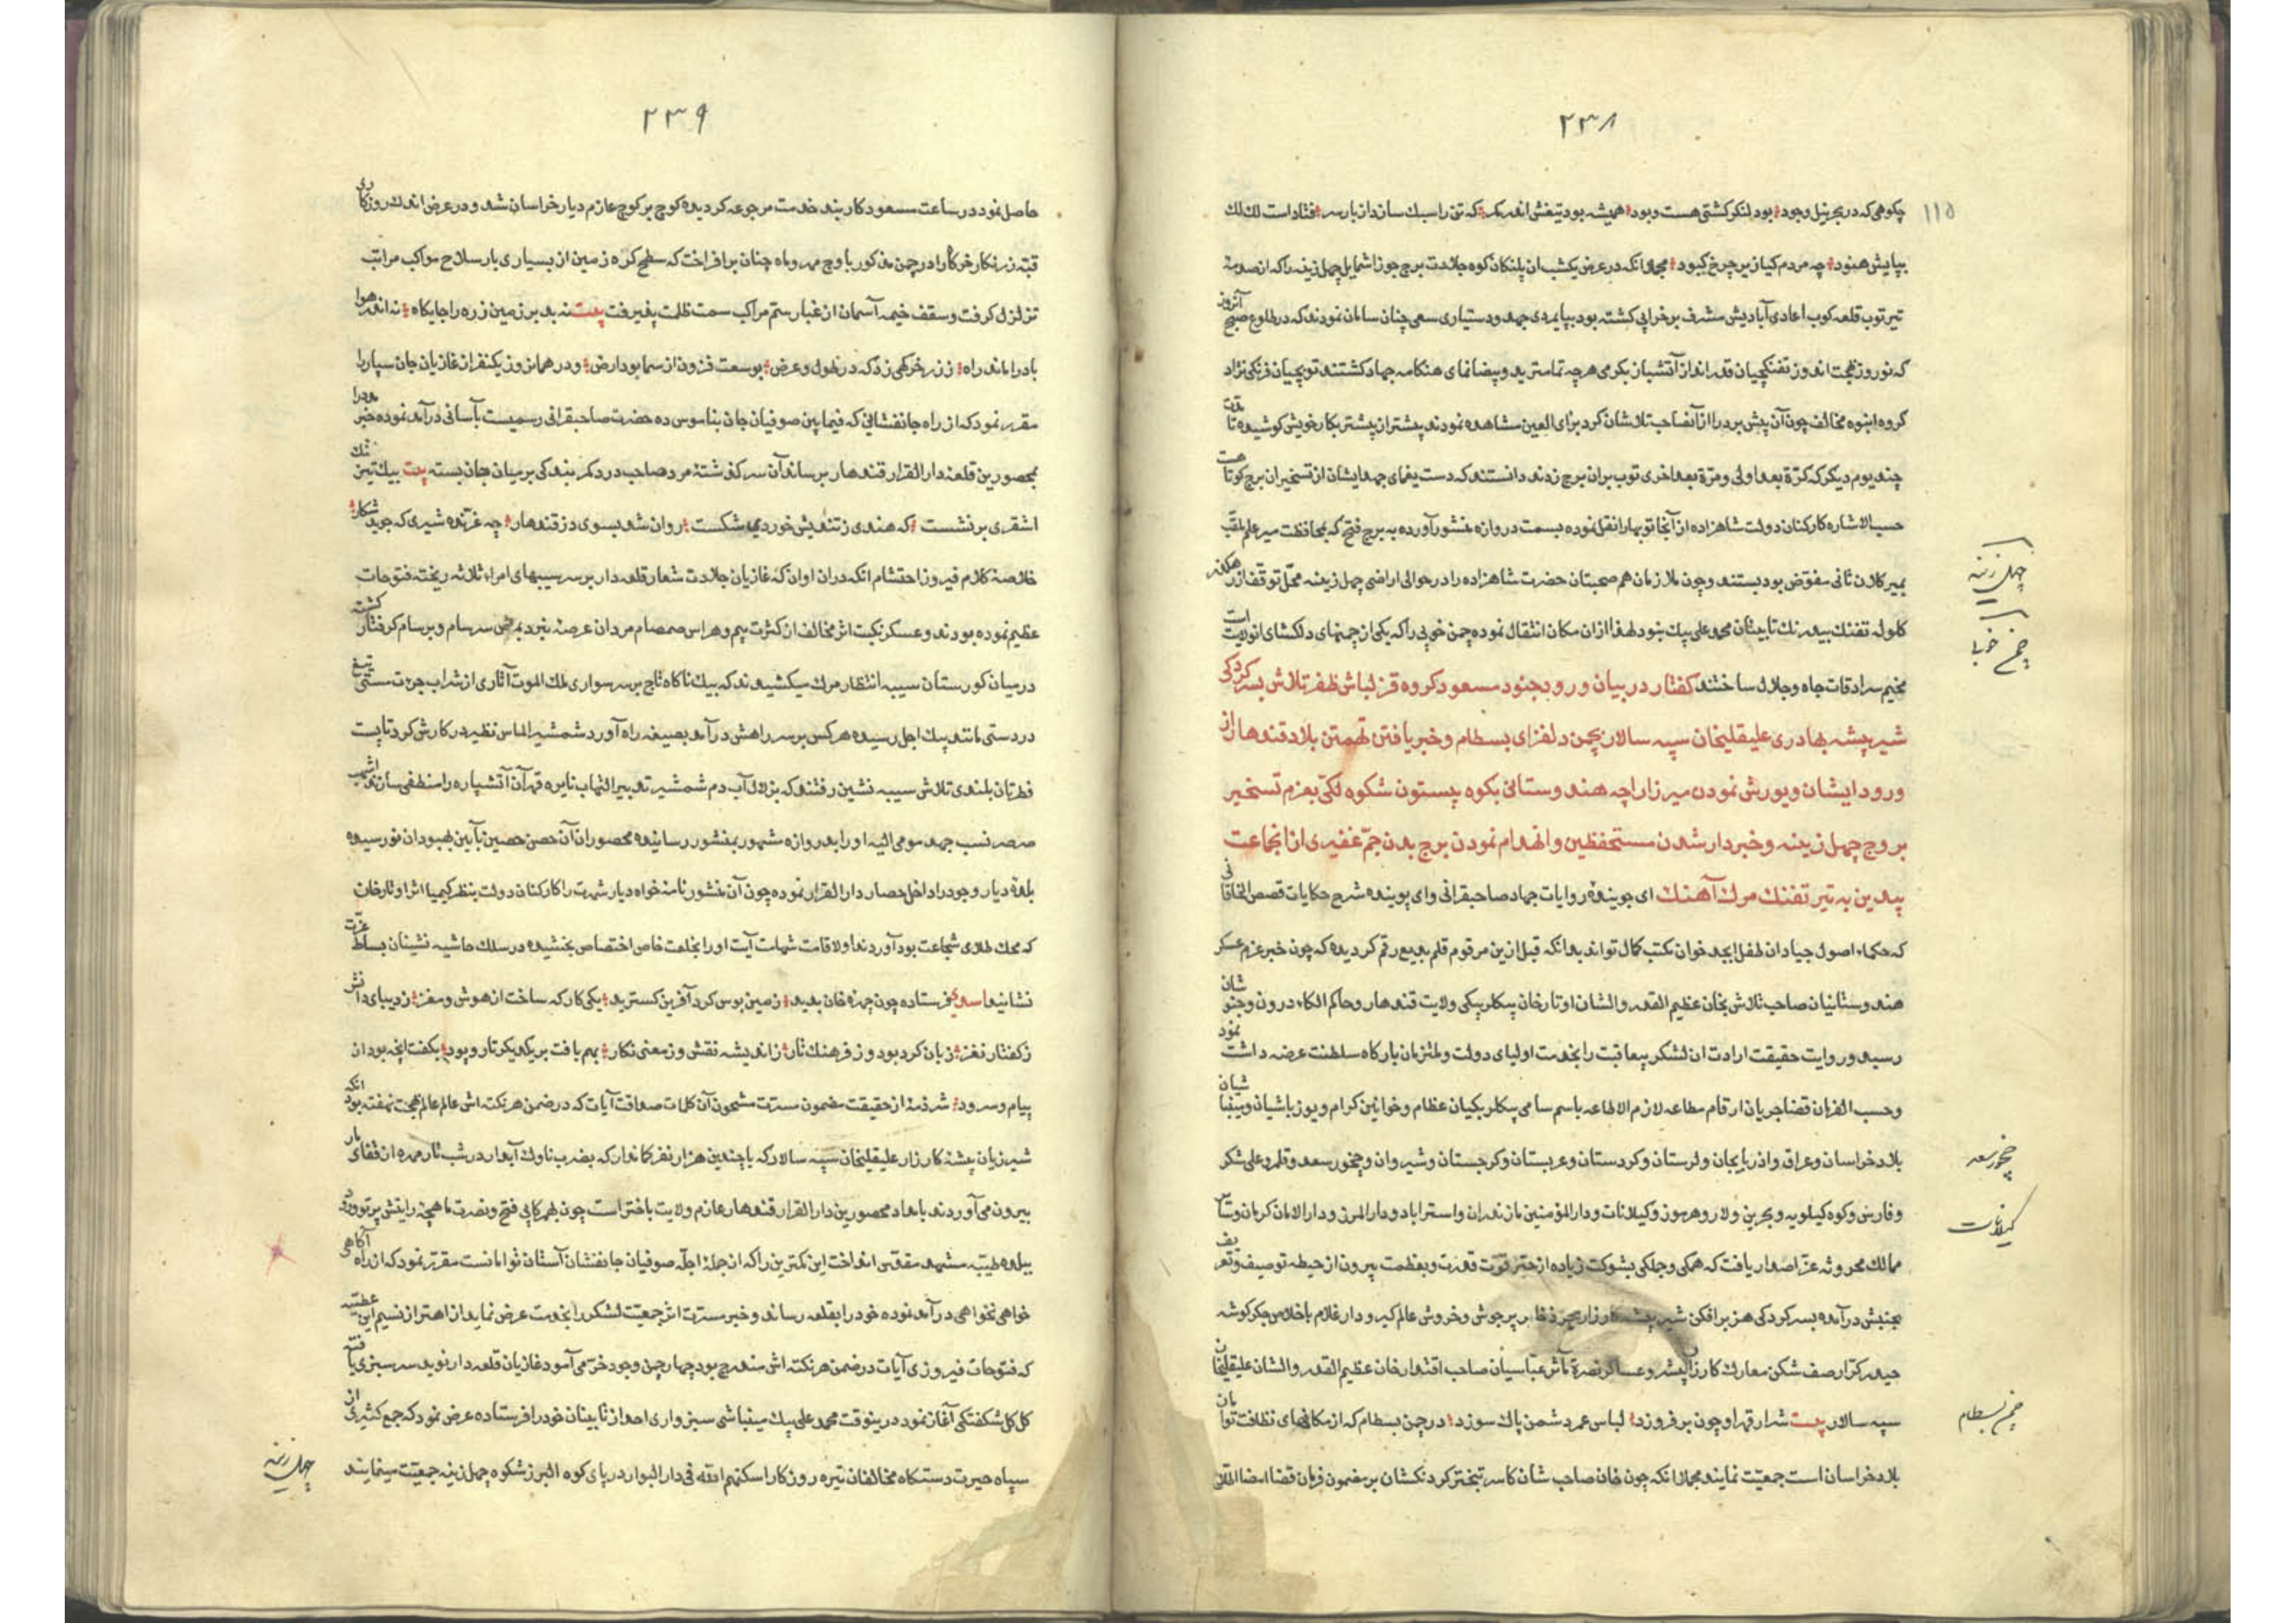 ۲۳۸
۱۱۵
چکوهی که در بحر نیل وجود بود لنکر کشتی هست و بود همیشه بود تیغش اندر کمر که تن را سبك سازد از بار سر فتاد است لك لك
بپایش هنود چه مردم کیا زیر چرخ کبود مجملا انکه در عرض یکشب ان پلنکان کوه جلادت برج جوزا شمایل چهل زینه را که از صدمه
تیر توپ قلعه کوب اعادی آبادیش مشرف بر خرابی کشته بود بپایمردی جهد و دستیاری سعی چنان سامان نمودند که در طلوع صبح آنروز
که نوروز بهجت اندوز تفنکچیان قدر انداز آتشباز بکرمی هر چه تمامتر ید و بیضا نمای هنکامه جهاد کشتند توپچیان فرنکی نژاد
کروه انبوه مخالف چون آن پیش برد را از آنصاحب تلاشان کرد برای العین مشاهده نمودند پیشتر از پیشتر بکار خویش کوشیده تا مدت
چند یوم دیکر که کرّة بعد اولی و مرّة بعد اخری توپ بران برج زدند دانستند که دست یغمای جهد ایشان از تسخیر ان برج کوتاهست
حسب الاشاره کارکنان دولت شاهزاده از آنجا توپها را نقل نموده بسمت دروازه منشور آورده به برج فتح که بمحافظت میر علم ملقب
بمیر کلان ثانی مفوّض بود بستند و چون ملازمان هم صحبتان حضرت شاهزاده را در حوالی اراضی چهل زینه محلّ توقف از رهکذر
کلوله تفنك بیدرنك تابینان محمد علی بیك نبود لهذا از ان مکان انتقال نموده چمن خوبی را که یکی از چمنهای دلکشای انولایت است
مخیم سرادقات جاه و جلال ساختند کفتار در بیان ورود جنود مسعود کروه قزلباش ظفر تلاش بسرکردکی
شیر بیشه بهادری علیقلیخان سپه سالار بچمن دلفزای بسطام و خبر یافتن تهمتن بلاد قندهار از
ورود ایشان و یورش نمودن میرزا راجه هندوستانی بکوه بیستون شکوه لکی بعزم تسخیر
بروج چهل زینه و خبردار شدن مستحفظین و انهدام نمودن برج بدن جمّ غفیری از انجماعت
بیدین به تیر تفنك مرك آهنك ای جوینده روایات جهاد صاحبقرانی وای پوینده شرح حکایات قصص الخاقانی
که حکماء اصول جیادان طفل ابجد خوان مکتب کمال تواند بدانکه قبل ازین مرقوم قلم بدیع رقم کردیده که چون خبر عزم عسکر
هندوستانیان صاحب تلاش بخان عظیم القدر والشان اوتارخان بیکلربیکی ولایت قندهار و حاکم الکاء درون و جنوشان
رسید و روایت حقیقت ارادت ان لشکر بیعاقبت را بخدمت اولیای دولت و ملتزمان بارکاه سلطنت عرضه داشت نمود
و حسب الفرمان قضا جریان ارقام مطاعه لازم الاطاعه باسم سامی بیکلربکیان عظام و خوانین کرام و یوزباشیان و مینباشیان
بلاد خراسان و عراق و اذربایجان و لرستان و کردستان و عربستان و کرجستان و شیروان و چخور سعد و قلمرو علی شکر
و فارس و کوه کیلویه و بحرین و لار و هرموز و کیلانات و دارالمؤمنین مازندران و استراباد و دارالمرز و دارالامان کرمان و سایر
ممالك محروسه عزّ اصدار یافت که همکی و جملکی بشوکت زیاده از حیّز قوّت قدرت و بعظمت بیرون از حیطه توصیف و تعریف
بجنبش در آمده بسرکردکی هزبر افکن شیر بیشه کارزار بحر ذخار پر جوش و خروش عالم کیر و دار غلام باخلاص جکر کوشه
حیدر کرّار صف شکن معارك کارزار پیشرو عساکر نصرة مآثر عبّاسیان صاحب اقتدار خان عظیم القدر والشان علیقلیخان
سپه سالار بیت شرار قهر او چون بر فروزد لباس عمر دشمن پاك سوزد در چمن بسطام که از مکانهای نظافت توامان
بلاد خراسان است جمعیّت نمایند مجملا انکه چون خان صاحب شان کاسر تبختر کردنکشان بر مضمون فرمان قضا امضا اطلاع
چهل زینه
چمن خوبی
چخور سعد
کیلانات
چمن بسطام
۲۳۹
حاصل نمود در ساعت مسعود کاربند خدمت مرجوعه کردیده کوچ بر کوچ عازم دیار خراسان شد و در عرض اندك روزکاری
قبّه زرنکار خرکاه را در چمن مذکور با وج مهر و ماه چنان برافراخت که سطح کره زمین از بسیاری بار سلاح مواکب مراتب
تزلزل کرفت و سقف خیمه آسمان از غبار ستم مراکب سمت ظلمت پذیرفت بیت نه بد بر زمین زره را جایکاه نه اندر هوا
باد را ماند راه زند خرکهی زد که در طول و عرض بوسعت فزون از سما بود ارض و در همانروز یکنفر از غازیان جان سپار را
مقرر نمود که از راه جانفشانی که فیمابین صوفیان جان بناموس ده حضرت صاحبقرانی رسمیست بآسانی در آمد نموده خبر مدد را
بمحصورین قلعه دارالقرار قندهار برساند آن سرکذشته مرد صاحب درد کمر بندکی بر میان جان بسته بیت بیك تیز تك
اشقری بر نشست که هندی ز تندیش خوردی شکست روان شد بسوی دز قندهار چه غرّنده شیری که جوید شکار
خلاصه کلام فیروز احتشام انکه دران اوان که غازیان جلادت شعار قلعه دار بر سر سیبهای امراء ثلاثه ریخته فتوحات
عظیم نموده بودند و عسکر نکبت اثر مخالف از کثرت بیم و هراس صمصام مردان عرصه نبرد بمرض سرسام و برسام کرفتار کشته
در میان کورستان سیبه انتظار مرك میکشیدند که بیك ناکاه تاج بر سر سواری ملك الموت آثاری از شراب جرءت مستی تیغ
در دستی مانند پیك اجل رسیده هر کس بر سر راهش در آمد بصیغه راه آورد شمشیر الماس نظیر در کارش کرد تا پست
فطرتان بلندی تلاش سیبه نشین رفتند که بزلال آب دم شمشیر تدبیر التهاب نایره قهر آن آتشپاره را منطفی سازند اشهب
صرصر نسب جهد مومی الیه او را بدروازه مشهور بمنشور رسانیده محصوران آن حصن حصین بآیین بهبود ان نو رسیده
بلده دیار وجود را داخل حصار دارالقرار نموده چون آن منشور نامه خواه دیار شهرت را کارکنان دولت بنظر کیمیا اثر اوتارخان
که محك طلای شجاعت بود آوردند اولا قامت شهامت آیت او را بخلعت خاص اختصاص بخشیده در سلك حاشیه نشینان بساط عزّت
نشانیدند فرستاده چون چهره خان بدید زمین بوس کرد آفرین کسترید یکی کار که ساخت از هوش و مغز ز دیبای دانش
ز کفتار نغز زبان کرد بود و ز فرهنك تار ز اندیشه نقش و ز معنی نکار بهم بافت بر یکدیکر تار و پود بکفت انچه بود ان
پیام و سرود شرذمه از حقیقت مضمون مسرّت مشحون آن کلمات صداقت آیات که در ضمن هر نکته اش عالم عالم بهجت نهفته بود انکه
شیر ژیان بیشه کارزار علیقلیخان سپه سالار که با چندین هزار نفر کماندار که بضرب ناوك آبدار در شب تار مهره از قفای مار
بیرون می آوردند بامداد محصورین دارالقرار قندهار عازم ولایت باختر است چون بهمرکابی فتح و نصرت ماهچه رایتش پرتو ورود
ببلده طیّبه مشهد مقدّس انداخت این کمترین را که از جمله اجلّه صوفیان جانفشان آستان توامانست مقرّر نمود که از راه آکاهی
خواهی نخواهی در آمد نموده خود را بقلعه رساند و خبر مسرّت اثر جمعیّت لشکر را بخدمت عرض نماید از اهتزاز نسیم این عطیّه
که فتوحات فیروزی آیات در ضمن هر نکته اش مندرج بود چهار چمن وجود خرّمی آسود غازیان قلعه دار نوید سر سبزی یافته
کل کل شکفتکی آغاز نمود درینوقت محمد علی بیك مینباشی سبزواری احد از تابینان خود را فرستاده عرض نمود که جمع کثیری از
سپاه حیرت دستکاه مخالفان تیره روزکار اسکنهم الله فی دارالبوار در پای کوه البرز شکوه چهل زینه جمعیّت مینمایند
چهل زینه